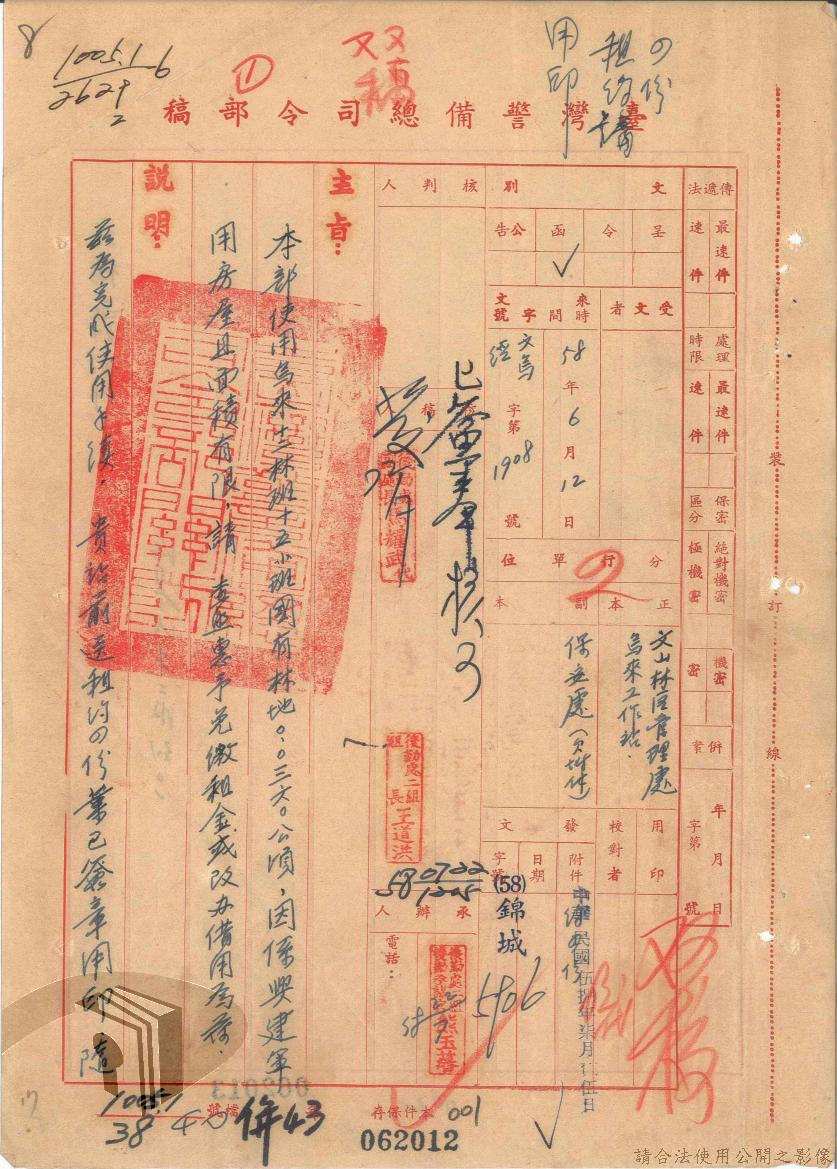 8
1005.1
2629
6
2
①
又又
稿
四份
租約請
用印
臺灣警備總司令部稿
傳遞法
最速件
速件
處理時限
最速件
速件
保密區分
絕對機密
極機密
機密
密
併案
年月日
字第號
文別
呈
令
函
公告
✓
受文者
來文
時間
字號
58年6月12日
文烏經字第1908號
分行單位
2
正本
副本
文山林區管理處
烏來工作站.
保安處(另附件)
用印
校對者
發文
附件
日期
字號
中華民國伍捌年柒月貳伍日
(58)錦城
5906
核判人
核稿人
承辦人
電話:
後勤處二組
組長王道洪
58 0722
1205
主旨:
本部使用烏來十三林班十五小班國有林地0.0360公頃,因係興建軍
用房屋且面積有限,請 查照惠予免繳租金或改办借用為荷.
說明:
茲為完成使用手續,貴站前送租約四份業已簽章用印,隨
本件保存
001
檔號
1005.1
38
併43
062012
062013
裝
訂
線
請合法使用公開之影像